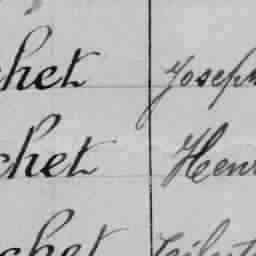 chet Joseph
chet Henr
chet